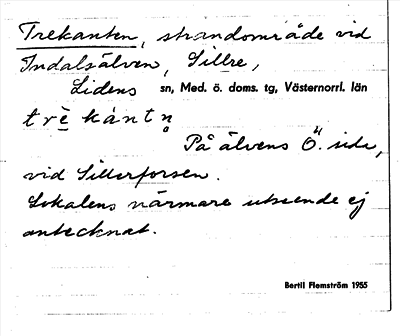 Trekanten, strandområde vid
Indalsälven, Sillre,
Lidens sn, Med. ö. doms. tg, Västernorrl. län
trè kántn̥
På älvens Ö. sida,
vid Sillerforsen.
Lokalens närmare utseende ej
antecknat.
Bertil Flemström 1955